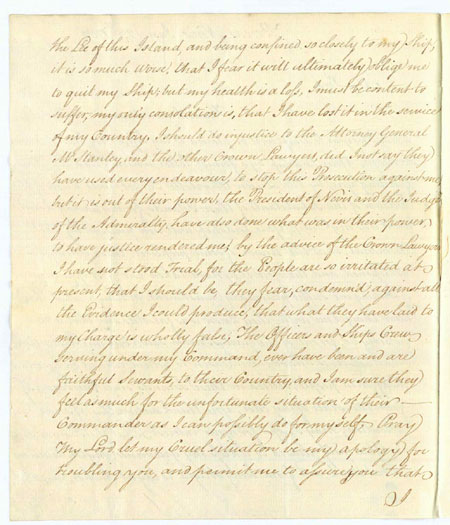 the Lee of this Island, and being confined so closely to my Ship,
it is so much worse, that I fear it will ultimately oblige me
to quit my Ship; but my health is a loss, I must be content to
suffer, my only consolation is, that I have lost it in the service
of my Country. I should do injustice to the Attorney General
Mr. Stanley, and the other Crown Lawyers, did I not say they
have used every endeavour, to stop this Prosecution against me,
but it is out of their power, the President of Nevis and the Judge
of the Admiralty, have also done what was in their power,
to have justice rendered me; by the advice of the Crown Lawyers
I have not stood Trial, for the People are so irritated at
present, that I should be, they fear, condemn'd, against all
the Evidence I could produce, that what they have laid to
my Charge is wholly false, The Officers and Ships Crew
serving under my Command, ever have been and are
faithful Servants, to their Country, and I am sure they
feel as much for the unfortunate situation of their
Commander as I can possibly do for myself. Pray
My Lord let my Cruel situation be my apology for
troubling you, and permit me to assure you that
I